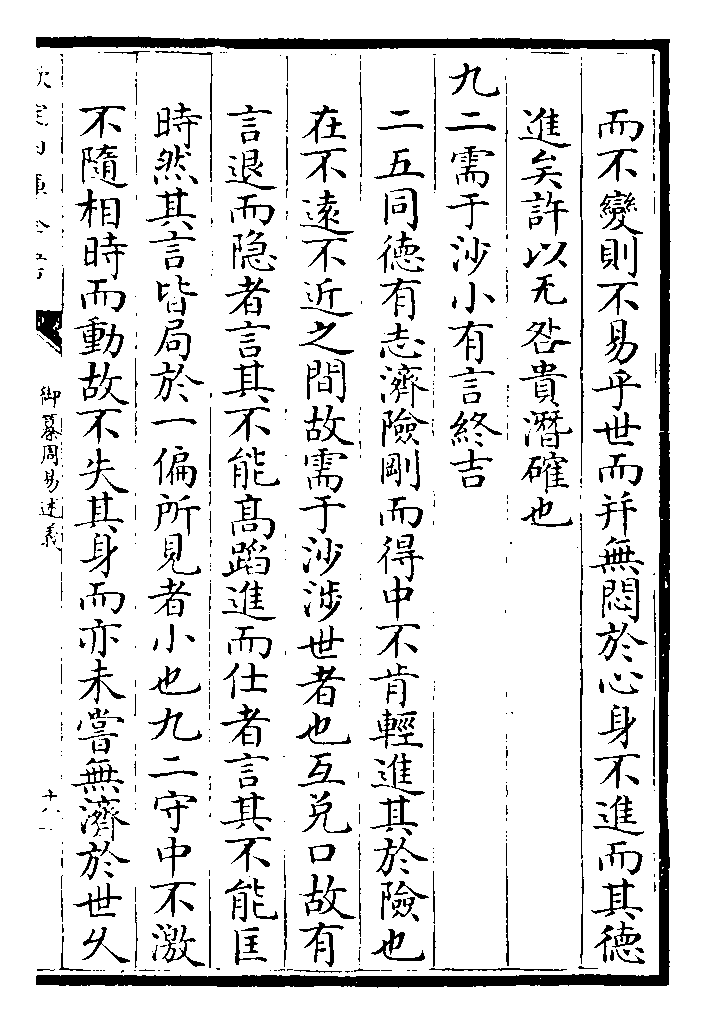 而不變則不易乎世而并無悶於心身不進而其德
進矣許以无咎貴潛確也
九二需于沙小有言終吉
二五同德有志濟險剛而得中不肯輕進其於險也
在不逺不近之間故需于沙涉世者也互兑口故有
言退而隐者言其不能髙蹈進而仕者言其不能匡
時然其言皆局於一偏所見者小也九二守中不激
不隨相時而動故不失其身而亦未嘗無濟於世乆
御纂周易述義